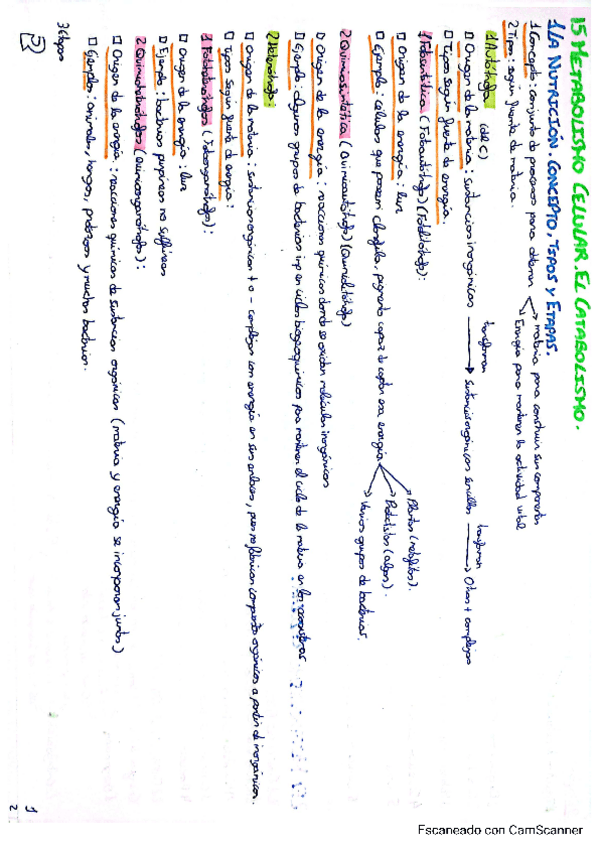 15 METABOLISMO CELULAR. EL CATABOLISMO.
1/LA NUTRICIÓN. CONCEPTO, TIPOS Y ETAPAS.
1 Concepto: conjunto de procesos para obtener
materia para construir sus componentes
Energía para mantener la actividad vital
2 Tipos: según fuente de materia.
1 Autótrofa (del C)
□ Origen de la materia: sustancias inorgánicas transforman → sustancias orgánicas sencillas transforman → Otras + complejas
□ Tipos según fuente de energía.
1 Fotosintética (Fotoautótrofa) (Fotolitótrofa):
□ Origen de la energía: luz
□ Ejemplo: células que poseen clorofila, pigmento capaz de captar esa energía
Plantas (metafitas).
Protoctistas (algas).
Varios grupos de bacterias.
2 Quimiosintética (Quimioautótrofa) (Quimiolitótrofa)
□ Origen de la energía: reacciones químicas donde se oxidan moléculas inorgánicas
□ Ejemplo: algunos grupos de bacterias imp en ciclos biogeoquímicos para mantener el ciclo de la materia en los ecosistemas.
2 Heterótrofa:
□ Origen de la materia: sustancias orgánicas + o - complejas con energía en sus enlaces, pues no fabrican compuestos orgánicos a partir de inorgánicos.
□ Tipos según fuente de energía:
1 Fotoheterótrofos (Fotoorganótrofos):
□ Origen de la energía: luz
□ Ejemplo: bacterias purpúreas no sulfúreas
2 Quimioheterótrofos (Quimioorganótrofos):
□ Origen de la energía: reacciones químicas de sustancias orgánicas (materia y energía se incorporan juntos)
□ Ejemplos: animales, hongos, protozoos y muchas bacterias.
3 Etapas
1
2
Escaneado con CamScanner